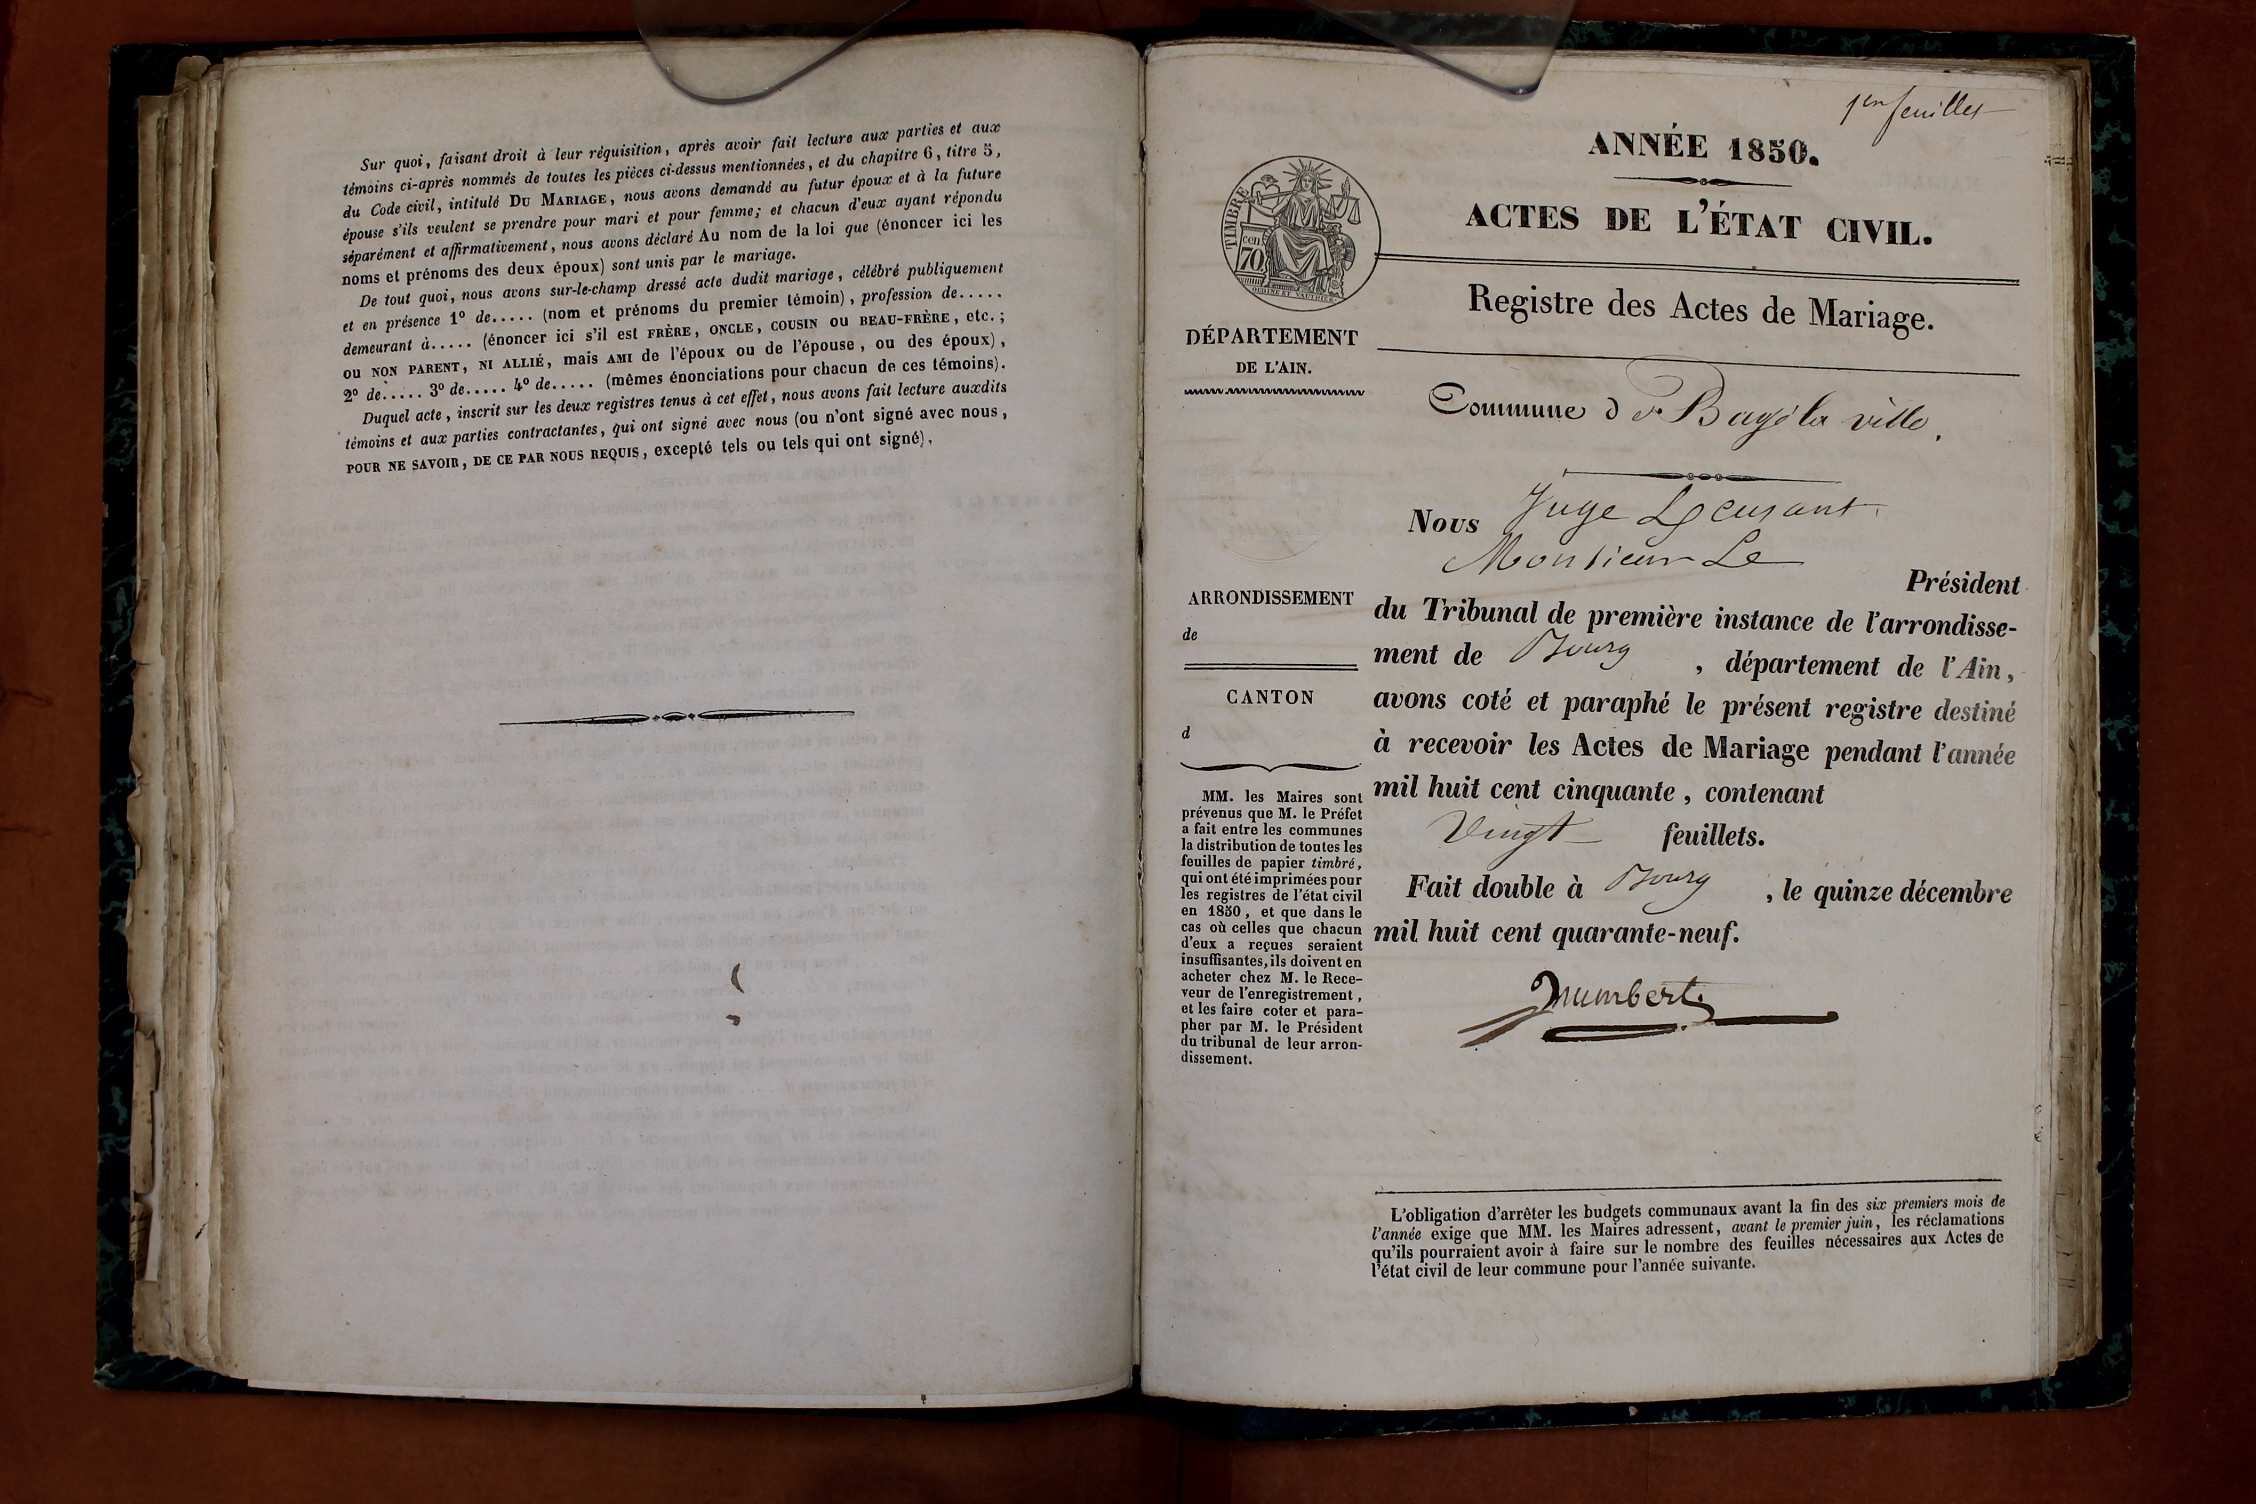 Sur quoi, faisant droit à leur réquisition, après avoir fait lecture aux parties et aux
témoins ci-après nommés de toutes les pièces ci-dessus mentionnées, et du chapitre 6, titre 5,
du Code civil, intitulé DU MARIAGE, nous avons demandé au futur époux et à la future
épouse s'ils veulent se prendre pour mari et pour femme; et chacun d'eux ayant répondu
séparément et affirmativement, nous avons déclaré Au nom de la loi que (énoncer ici les
noms et prénoms des deux époux) sont unis par le mariage.
De tout quoi, nous avons sur-le-champ dressé acte dudit mariage, célébré publiquement
et en présence 1º de..... (nom et prénoms du premier témoin), profession de.....
demeurant à..... (énoncer ici s'il est FRÈRE, ONCLE, COUSIN OU BEAU-FRÈRE, etc.;
ou NON PARENT, NI ALLIÉ, mais AMI de l'époux ou de l'épouse, ou des époux),
2º de..... 3º de..... 4º de..... (mêmes énonciations pour chacun de ces témoins).
Duquel acte, inscrit sur les deux registres tenus à cet effet, nous avons fait lecture auxdits
témoins et aux parties contractantes, qui ont signé avec nous (ou n'ont signé avec nous,
POUR NE SAVOIR, DE CE PAR NOUS REQUIS, excepté tels ou tels qui ont signé).
1er feuillet
ANNÉE 1850.
ACTES DE L'ÉTAT CIVIL.
TIMBRE
cen
70
Registre des Actes de Mariage.
DÉPARTEMENT
DE L'AIN.
Commune de Bagé la ville.
Nous Juge
Monsieur Le
Président
du Tribunal de première instance de l'arrondisse-
ment de Bourg, département de l'Ain,
avons coté et paraphé le présent registre destiné
à recevoir les Actes de Mariage pendant l'année
mil huit cent cinquante, contenant
Vingt feuillets.
Fait double à Bourg, le quinze décembre
mil huit cent quarante-neuf.
ARRONDISSEMENT
de
CANTON
d
MM. les Maires sont
prévenus que M. le Préfet
a fait entre les communes
la distribution de toutes les
feuilles de papier timbré,
qui ont été imprimées pour
les registres de l'état civil
en 1850, et que dans le
cas où celles que chacun
d'eux a reçues seraient
insuffisantes, ils doivent en
acheter chez M. le Rece-
veur de l'enregistrement,
et les faire coter et para-
pher par M. le Président
du tribunal de leur arron-
dissement.
L'obligation d'arrêter les budgets communaux avant la fin des six premiers mois de
l'année exige que MM. les Maires adressent, avant le premier juin, les réclamations
qu'ils pourraient avoir à faire sur le nombre des feuilles nécessaires aux Actes de
l'état civil de leur commune pour l'année suivante.